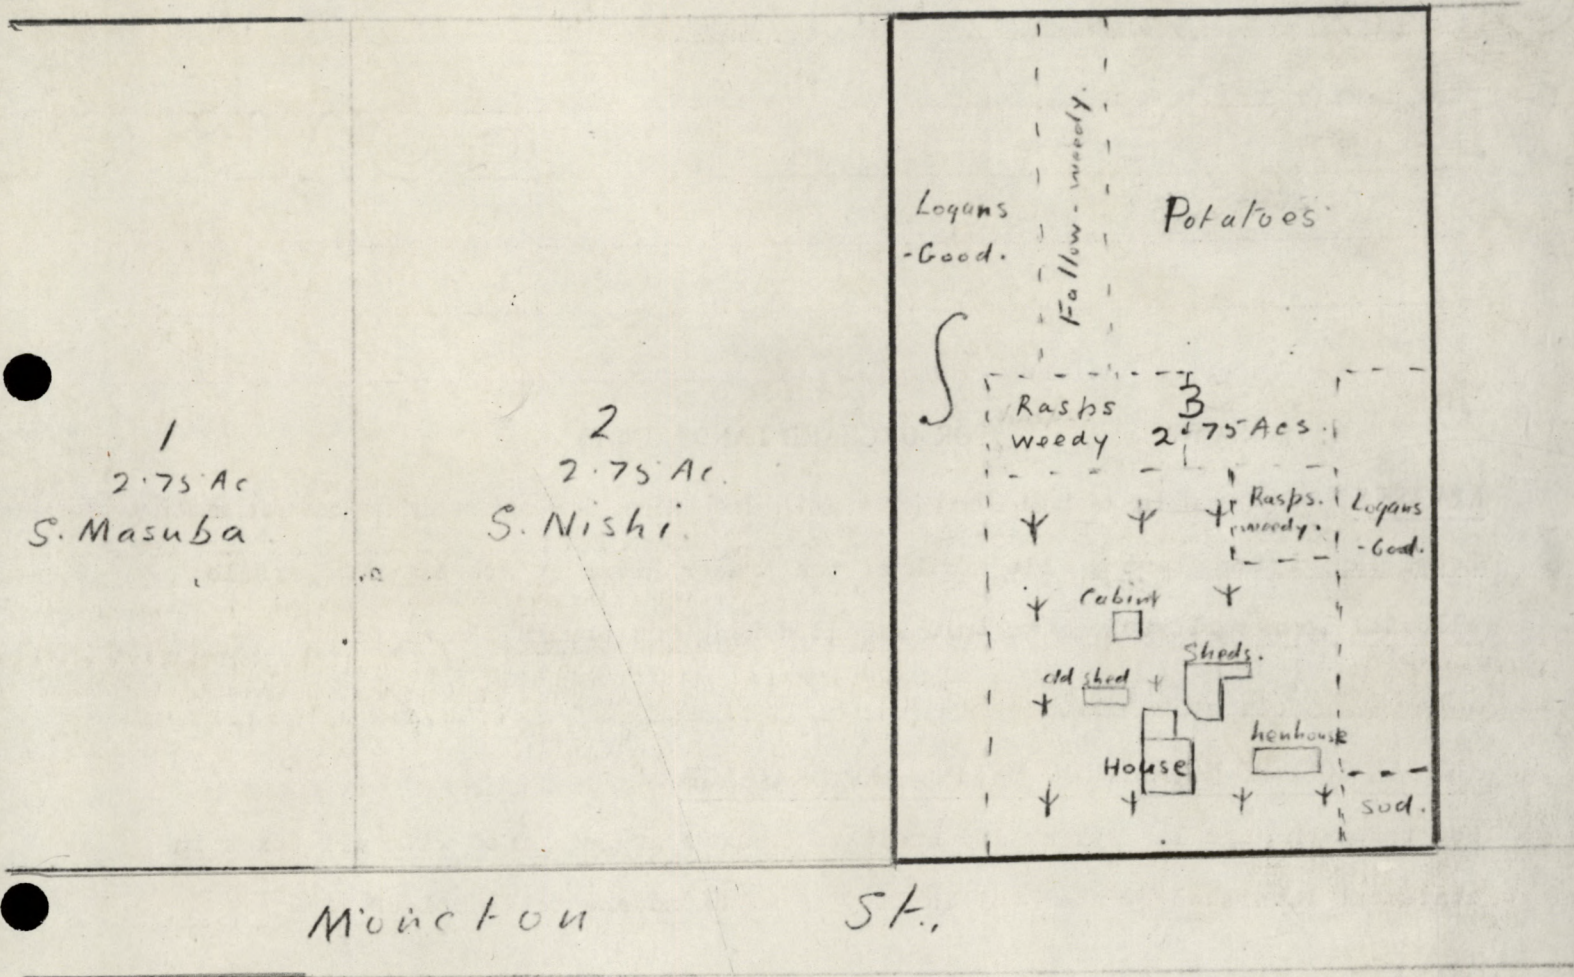 1
2.75 Ac
S. Masuba
2
2.75 Ac.
S. Nishi
Logans
-Good.
Fallow - weedy.
Potatoes
Rasps
weedy
3
2.75 Acs.
Rasps.
weedy.
Logans
-Good.
Cabin
Sheds.
old shed
henhouse
House
sod.
Moncton St.,